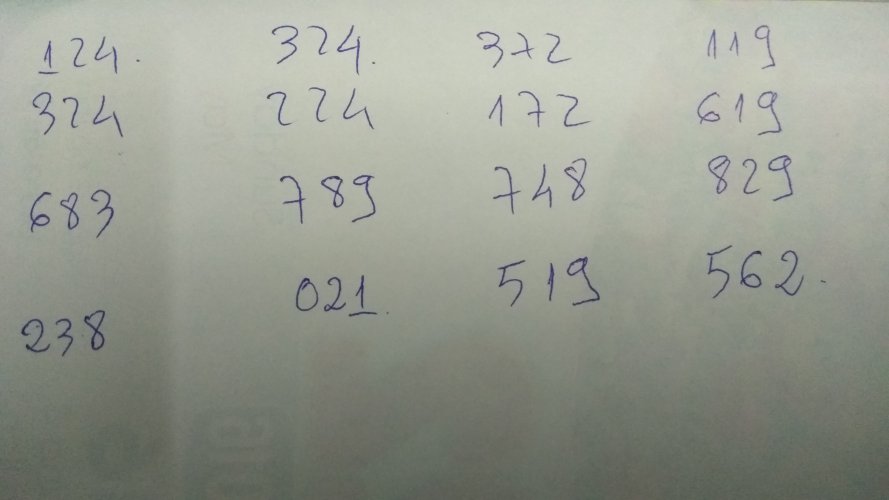 124. 324. 372 119
324 224 172 619
683 789 748 829
238 021. 519 562.